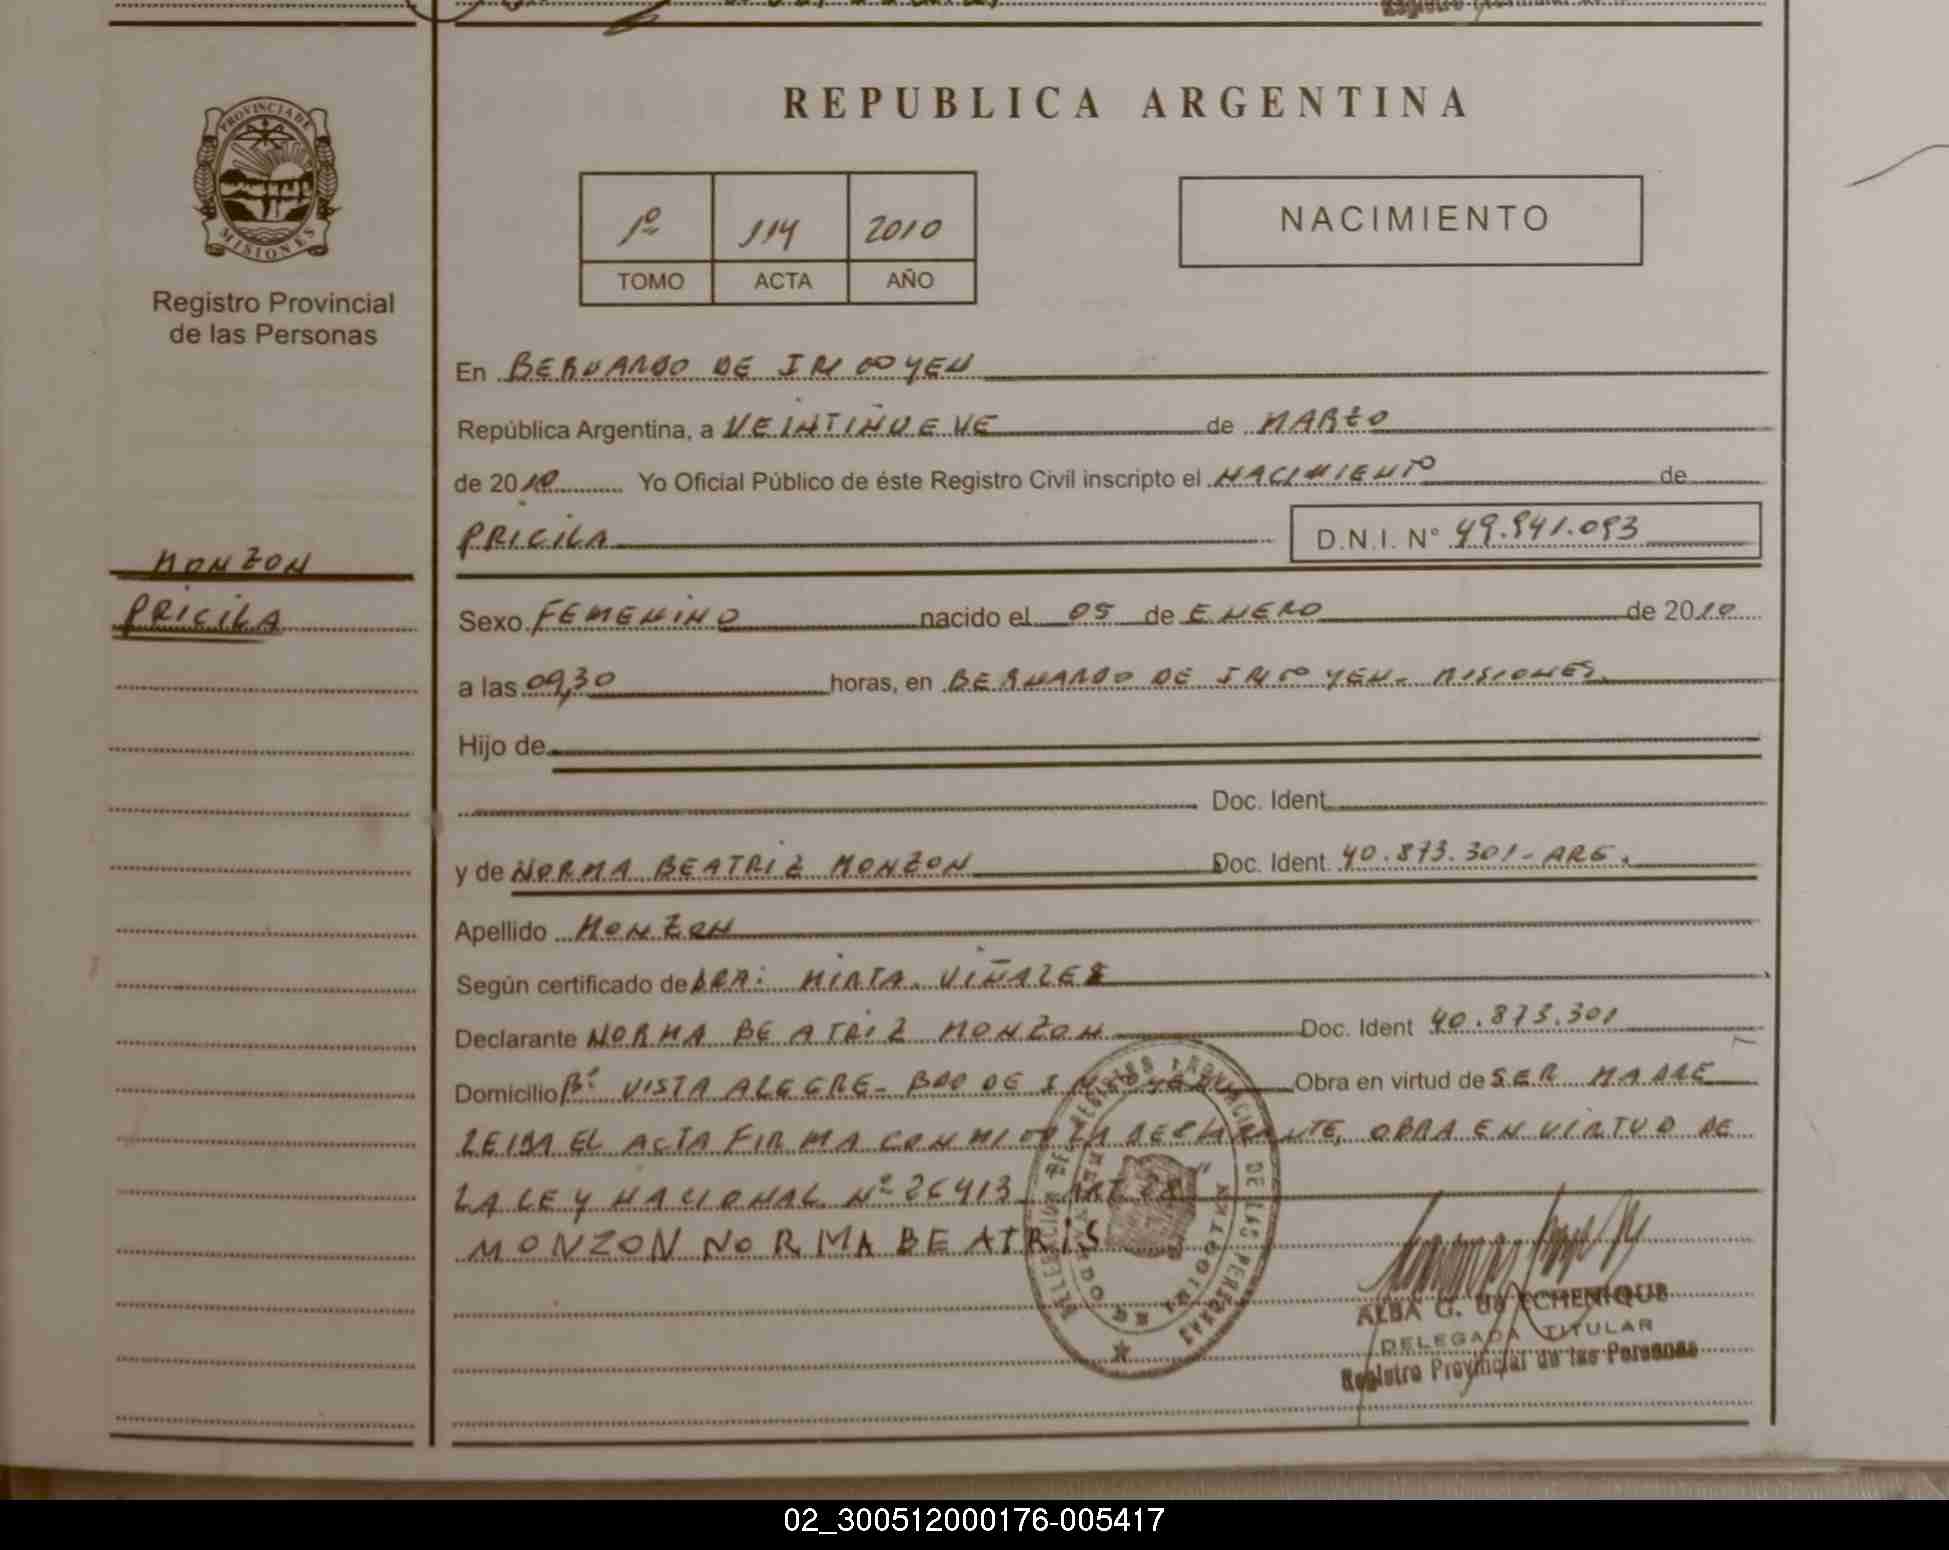 PROVINCIA DE
MISIONES
Registro Provincial
de las Personas
MONZON
PRICILA
REPUBLICA ARGENTINA
1º 114 2010
TOMO ACTA AÑO
NACIMIENTO
En BERNARDO DE IRIGOYEN
República Argentina, a VEINTINUEVE de MARZO
de 2010 Yo Oficial Público de éste Registro Civil inscripto el NACIMIENTO de
PRICILA D.N.I. N° 49.941.093
Sexo FEMENINO nacido el 05 de ENERO de 2010
a las 09,30 horas, en BERNARDO DE IRIGOYEN- MISIONES.
Hijo de
Doc. Ident.
y de NORMA BEATRIZ MONZON Doc. Ident. 40.873.301-ARG.
Apellido MONZON
Según certificado de DRA: MIRTA VIÑALES
Declarante NORMA BEATRIZ MONZON Doc. Ident 40.873.301
Domicilio Bº VISTA ALEGRE- BDO DE IRIGOYEN Obra en virtud de SER MADRE
LEIDA EL ACTA FIRMA CONMIGO LA DECLARANTE, OBRA EN VIRTUD DE
LA LEY NACIONAL Nº 26413 ART 28
MONZON NORMA BEATRIS
ALBA G. ECHENIQUE
DELEGADA TITULAR
Registro Provincial de las Personas
02_300512000176-005417